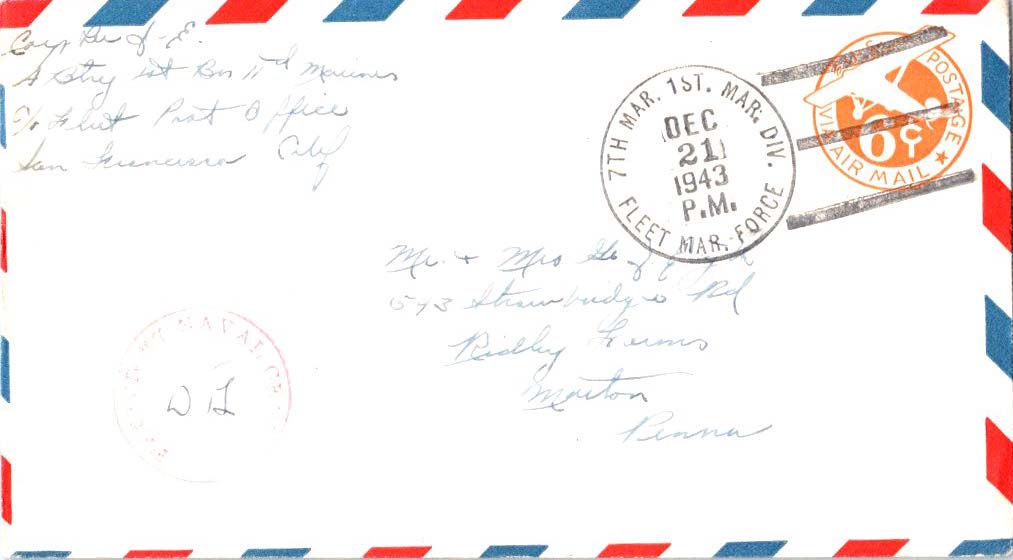 Corp
A Btry 1st Bn 11th Marines
c/o Fleet Post Office
San Francisco Calif
7TH MAR. 1ST. MAR. DIV.
DEC
21
1943
P.M.
FLEET MAR. FORCE
POSTAGE
6¢
VIA AIR MAIL
Mr. + Mrs
543 Rd
Ridley Farms
Morton
Penna
PASSED BY NAVAL